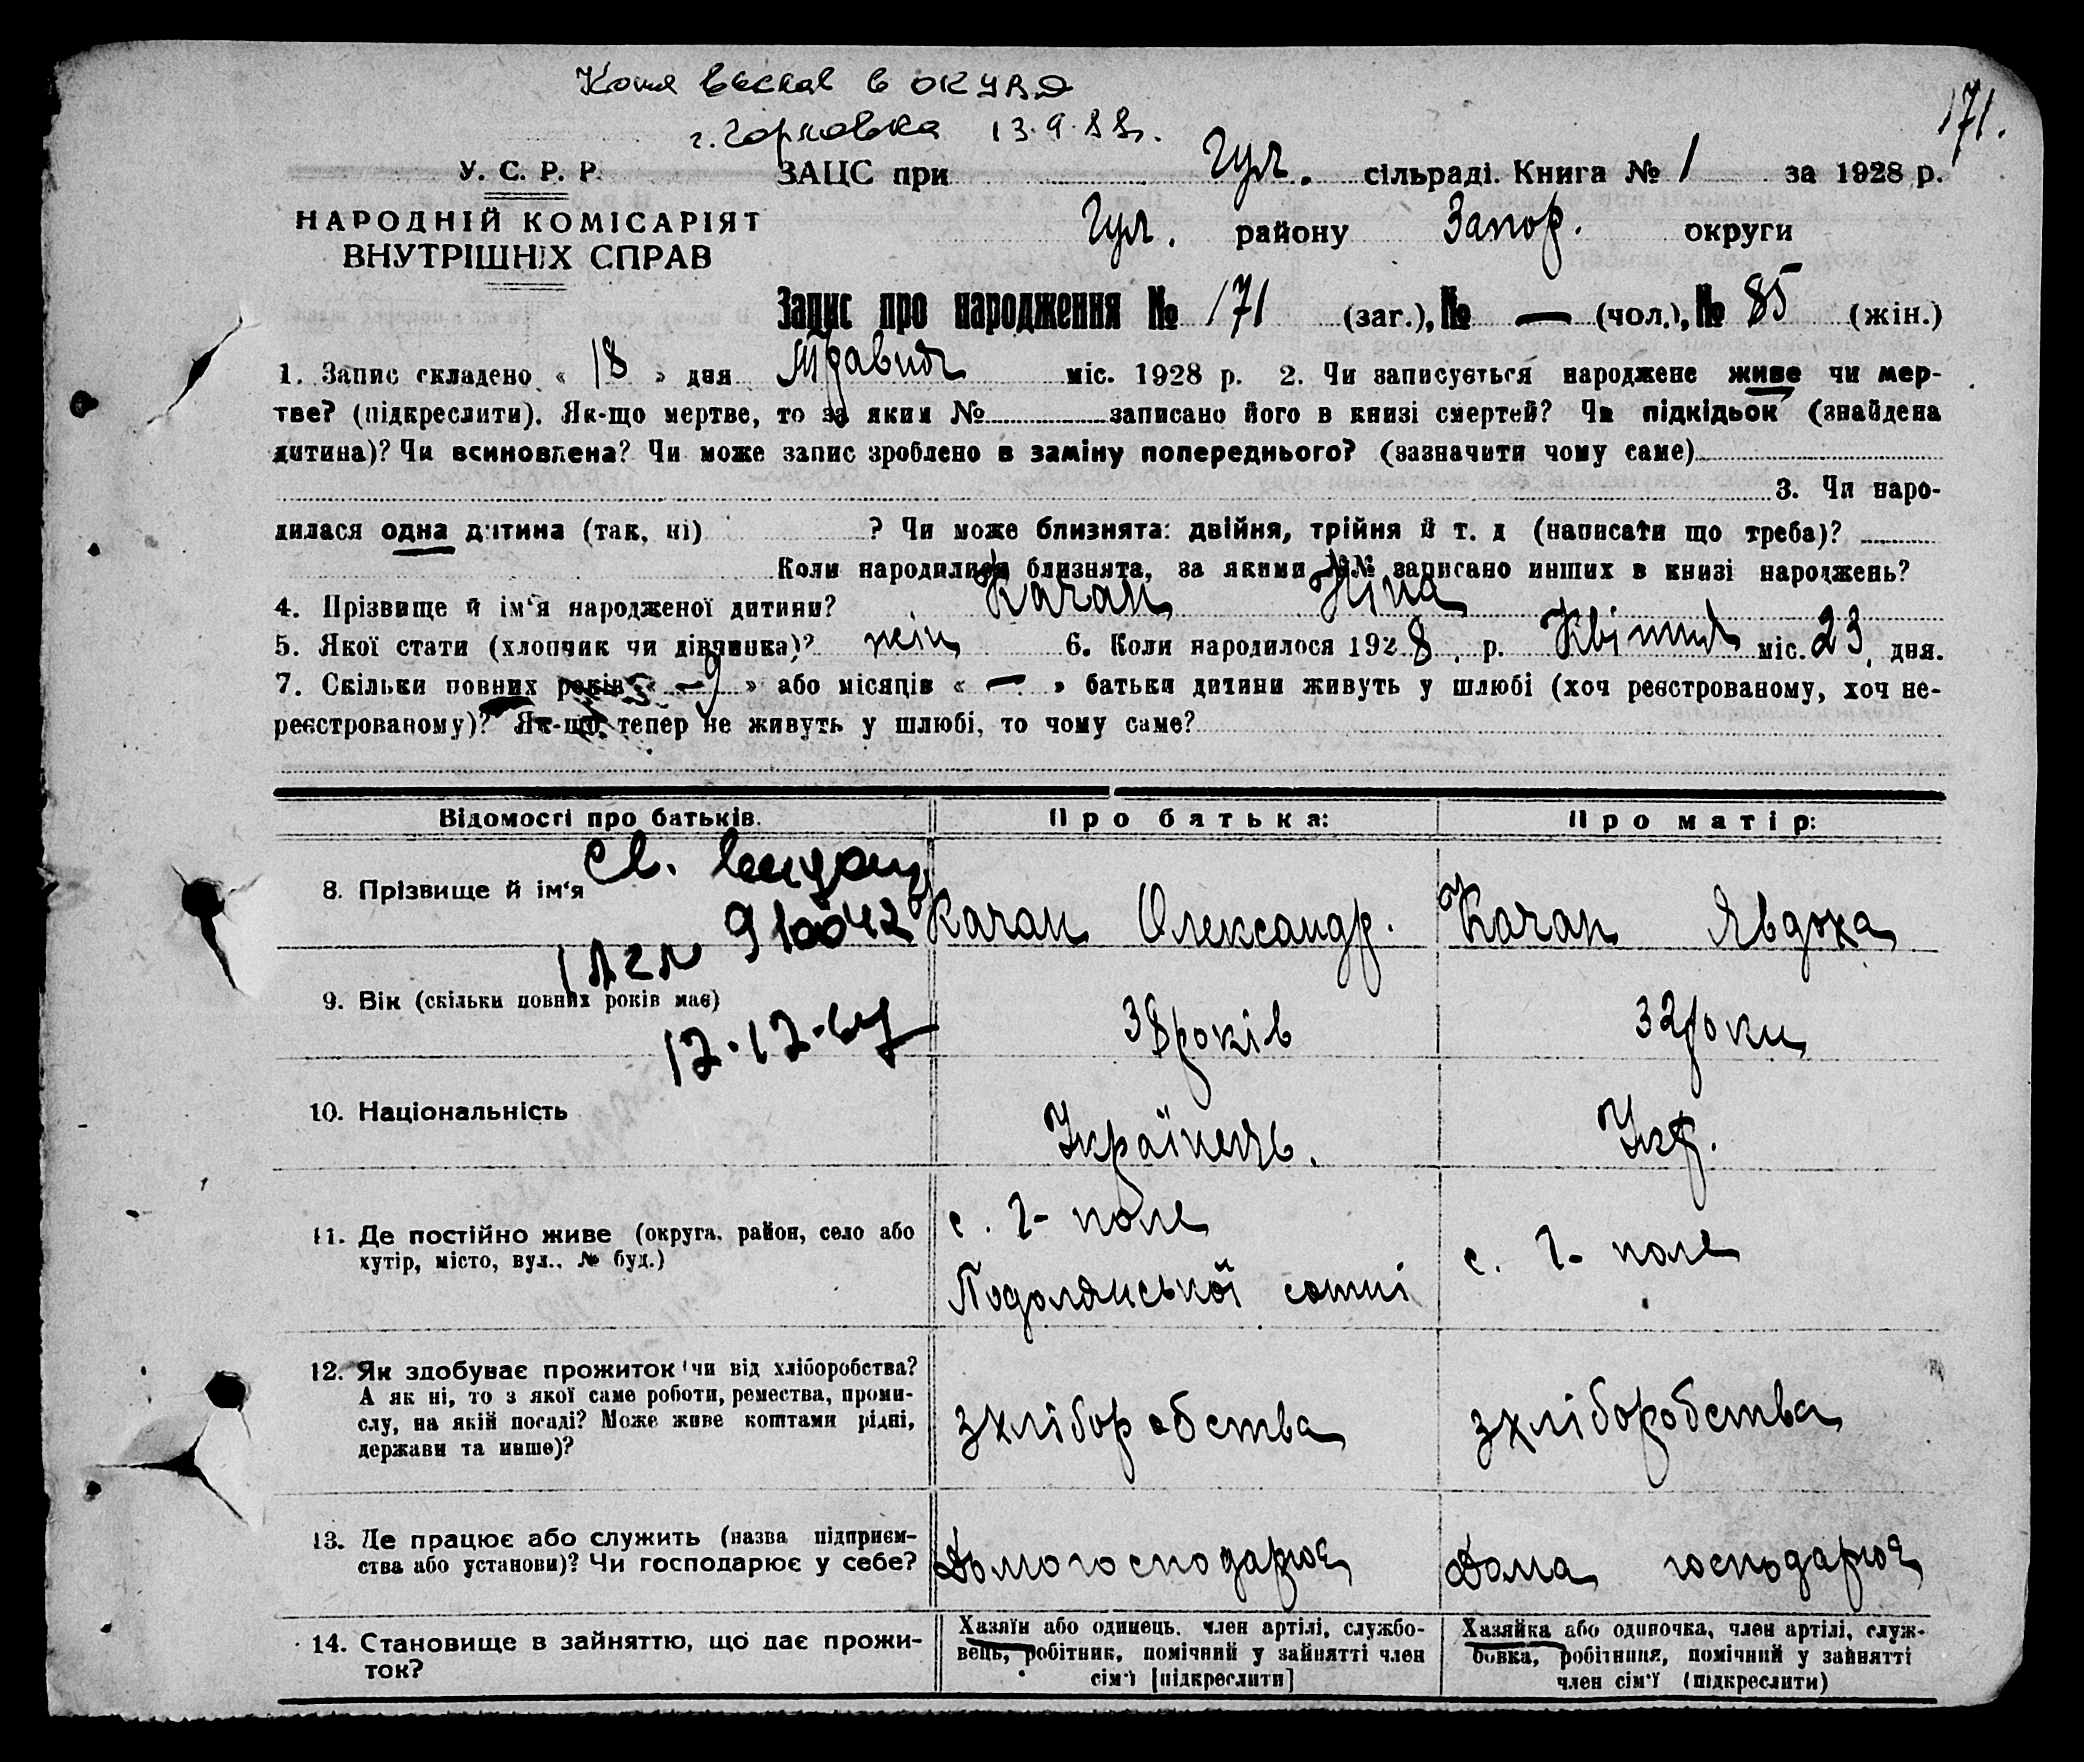 в ОКУВД
13.9.88г.
171.
У. С. Р. Р.
НАРОДНІЙ КОМІСАРІЯТ
ВНУТРІШНІХ СПРАВ
ЗАЦС при Гул. сільраді. Книга № 1 за 1928 р.
Гул. району Запор. округи
Запис про народження № 171 (заг.), № — (чол.), № 85 (жін.)
1. Запис складено « 18 » дня Травня міс. 1928 р. 2. Чи записується народжене живе чи мер-
тве? (підкреслити). Як-що мертве, то за яким № записано його в книзі смертей? Чи підкідьок (знайдена
дитина)? Чи всиновлена? Чи може запис зроблено в заміну попереднього? (зазначити чому саме)
3. Чи наро-
дилася одна дитина (так, ні) ? Чи може близнята: двійня, трійня й т. д (написати що треба)?
Коли народилися близнята, за якими №№ записано инших в книзі народжень?
4. Прізвище й ім‘я народженої дитини? Качан Ніна
5. Якої стати (хлопчик чи дівчинка)? жін 6. Коли народилося 1928 р. Квітня міс. 23 дня.
7. Скільки повних років « 9 » або місяців « — » батьки дитини живуть у шлюбі (хоч реєстрованому, хоч не-
реєстрованому)? Як-що тепер не живуть у шлюбі, то чому саме?
Відомості про батьків.
Про батька:
Про матір:
8. Прізвище й ім‘я
св.
910042
Качан Олександр.
Качан Явдоха
9. Вік (скільки повних років має)
12.12.67
38 років
32 роки
10. Національність
Українець.
Укр.
11. Де постійно живе (округа, район, село або
хутір, місто, вул., № буд.)
с. Г-поле
Подолянської сотні
с. Г-поле
12. Як здобуває прожиток (чи від хліборобства?
А як ні, то з якої саме роботи, ремества, проми-
слу, на якій посаді? Може живе коштами рідні,
держави та инше)?
з хліборобства
з хліборобства
13. Де працює або служить (назва підприєм-
ства або установи)? Чи господарює у себе?
Дома господарює
Дома господарює
14. Становище в зайняттю, що дає прожи-
ток?
Хазяїн або одинець, член артілі, службо-
вець, робітник, помічний у зайнятті член
сім‘ї [підкреслити]
Хазяйка або одиночка, член артілі, служ-
бовка, робітниця, помічний у зайнятті
член сім‘ї (підкреслити)